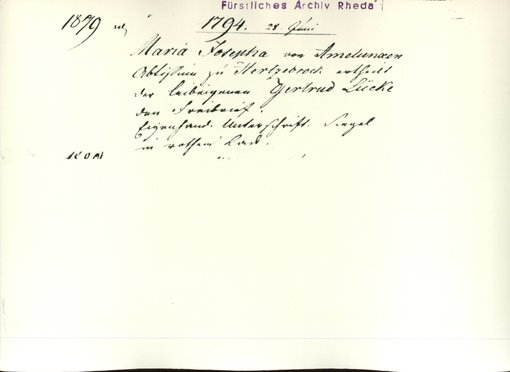 Fürstliches Archiv Rheda
1879 1794. 28. Juni
Maria Josepha von Amelunxen
Abtissin zu Hertzebrock ertheilt
der leibeigenen Gertrud Lücke
den Freibrief.
Eigenhänd. Unterschrift. Siegel
in rothem Lack.